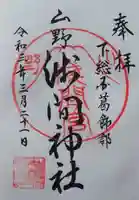 奉拝
下総国葛飾郡
山野浅間神社
令和三年三月二十一日